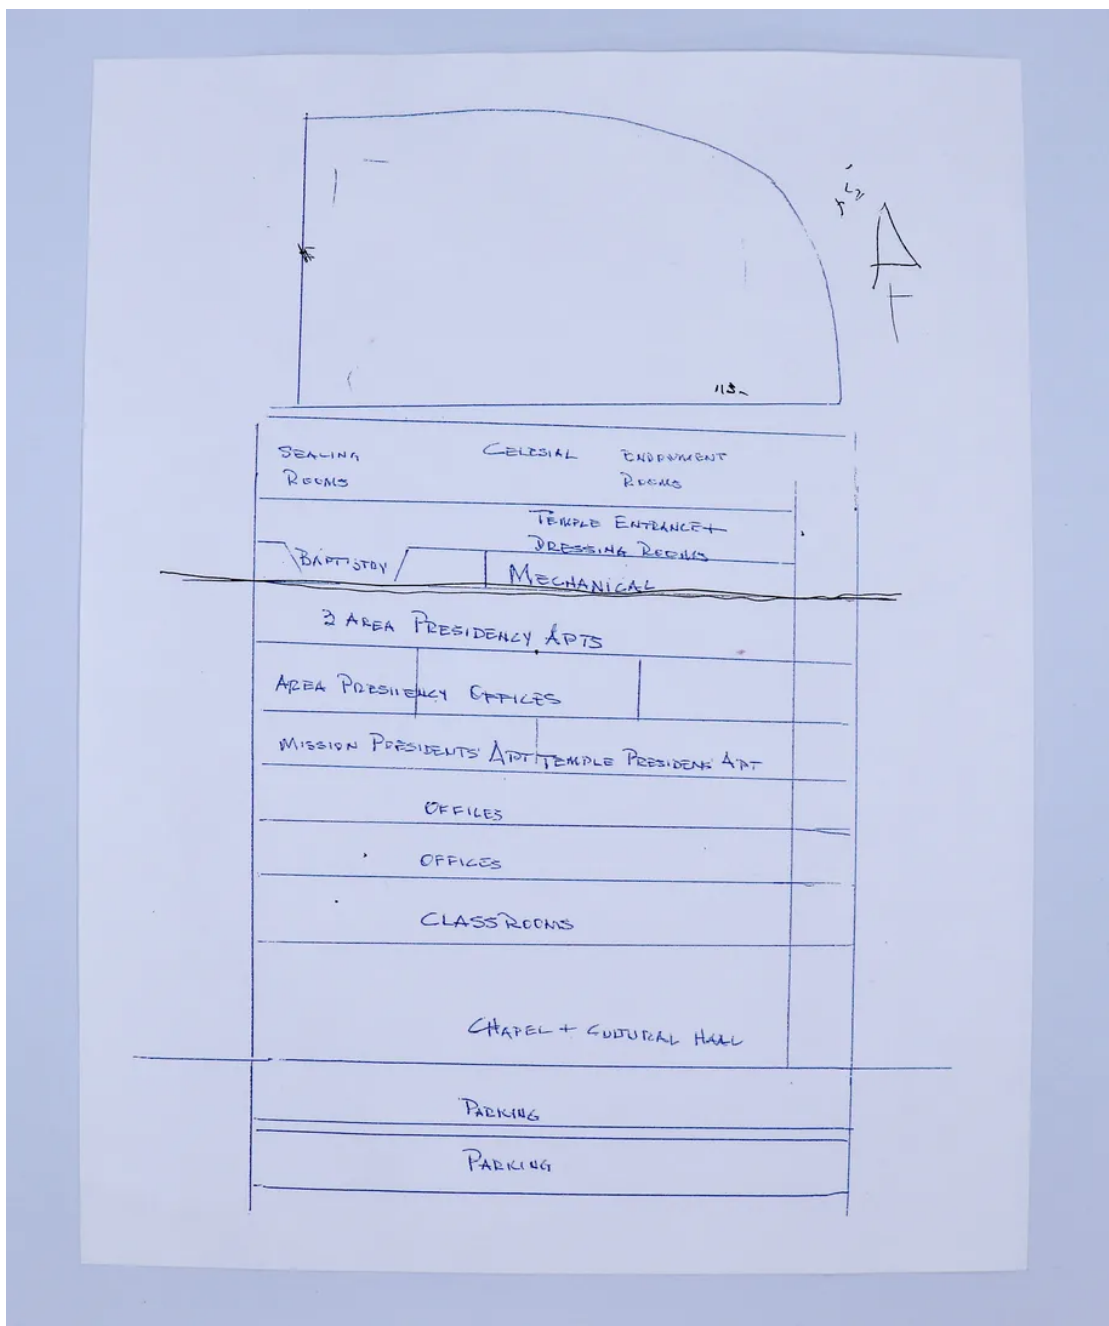 113-
SEALING CELESIAL ENDOWMENT
ROOMS ROOMS
TEMPLE ENTRANCE +
DRESSING ROOMS
BAPTISTRY
MECHANICAL
3 AREA PRESIDENCY APTS
AREA PRESIDENCY OFFICES
MISSION PRESIDENTS' APT TEMPLE PRESIDENS APT
OFFICES
OFFICES
CLASSROOMS
CHAPEL + CULTURAL HALL
PARKING
PARKING